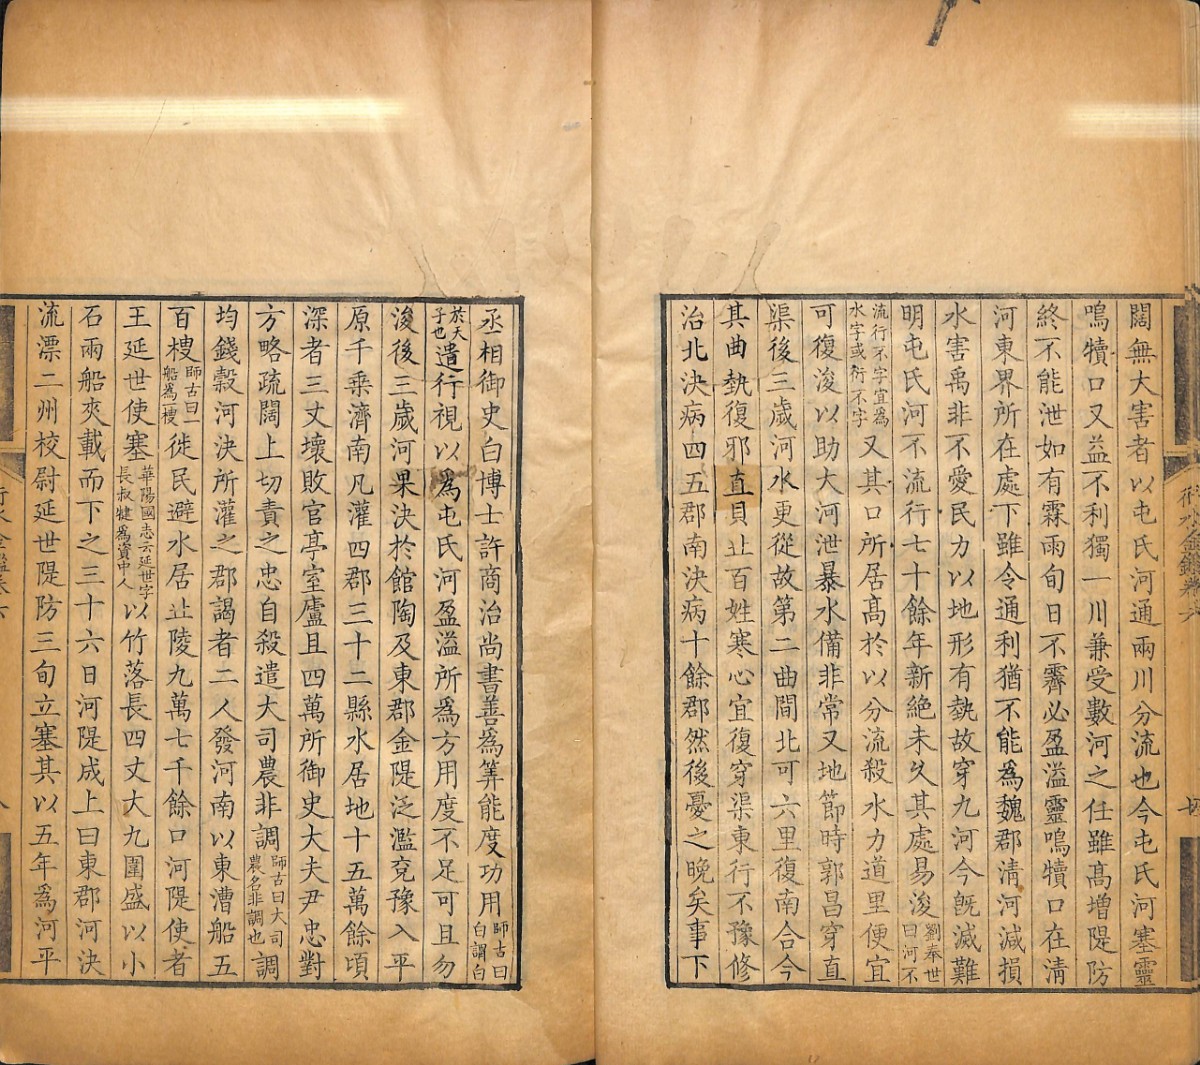 闊無大害者以屯氏河通兩川分流也今屯氏河塞靈
鳴犢口又益不利獨一川兼受數河之任雖髙増隄防
終不能泄如有霖雨旬日不霽必盈溢靈鳴犢口在清
河東界所在處下雖令通利猶不能為魏郡清河減損
水害禹非不愛民力以地形有埶故穿九河今旣滅難
明屯氏河不流行七十餘年新絕未久其處易浚劉奉世曰河不
流行不字宜為水字或衍不字又其口所居髙於以分流殺水力道里便宜
可復浚以助大河泄暴水備非常又地節時郭昌穿直
渠後三歲河水更從故第二曲間北可六里復南合今
其曲埶復邪直貝丘百姓寒心宜復穿渠東行不豫修
治北決病四五郡南決病十餘郡然後憂之晚矣事下
行水金鑑卷六
丞相御史白博士許商治尚書善為筭能度功用師古曰白謂白
於天子也遣行視以為屯氏河盈溢所為方用度不足可且勿
浚後三歲河果決於館陶及東郡金隄泛濫兗豫入平
原千乘濟南凡灌四郡三十二縣水居地十五萬餘頃
深者三丈壞敗官亭室廬且四萬所御史大夫尹忠對
方略疏闊上切責之忠自殺遣大司農非調師古曰大司農名非調也調
均錢穀河決所灌之郡謁者二人發河南以東漕船五
百㮴師古曰一船為一㮴徙民避水居丘陵九萬七千餘口河隄使者
王延世使塞華陽國志云延世字長叔犍為資中人以竹落長四丈大九圍盛以小
石兩船夾載而下之三十六日河隄成上曰東郡河決
流漂二州校尉延世隄防三旬立塞其以五年為河平